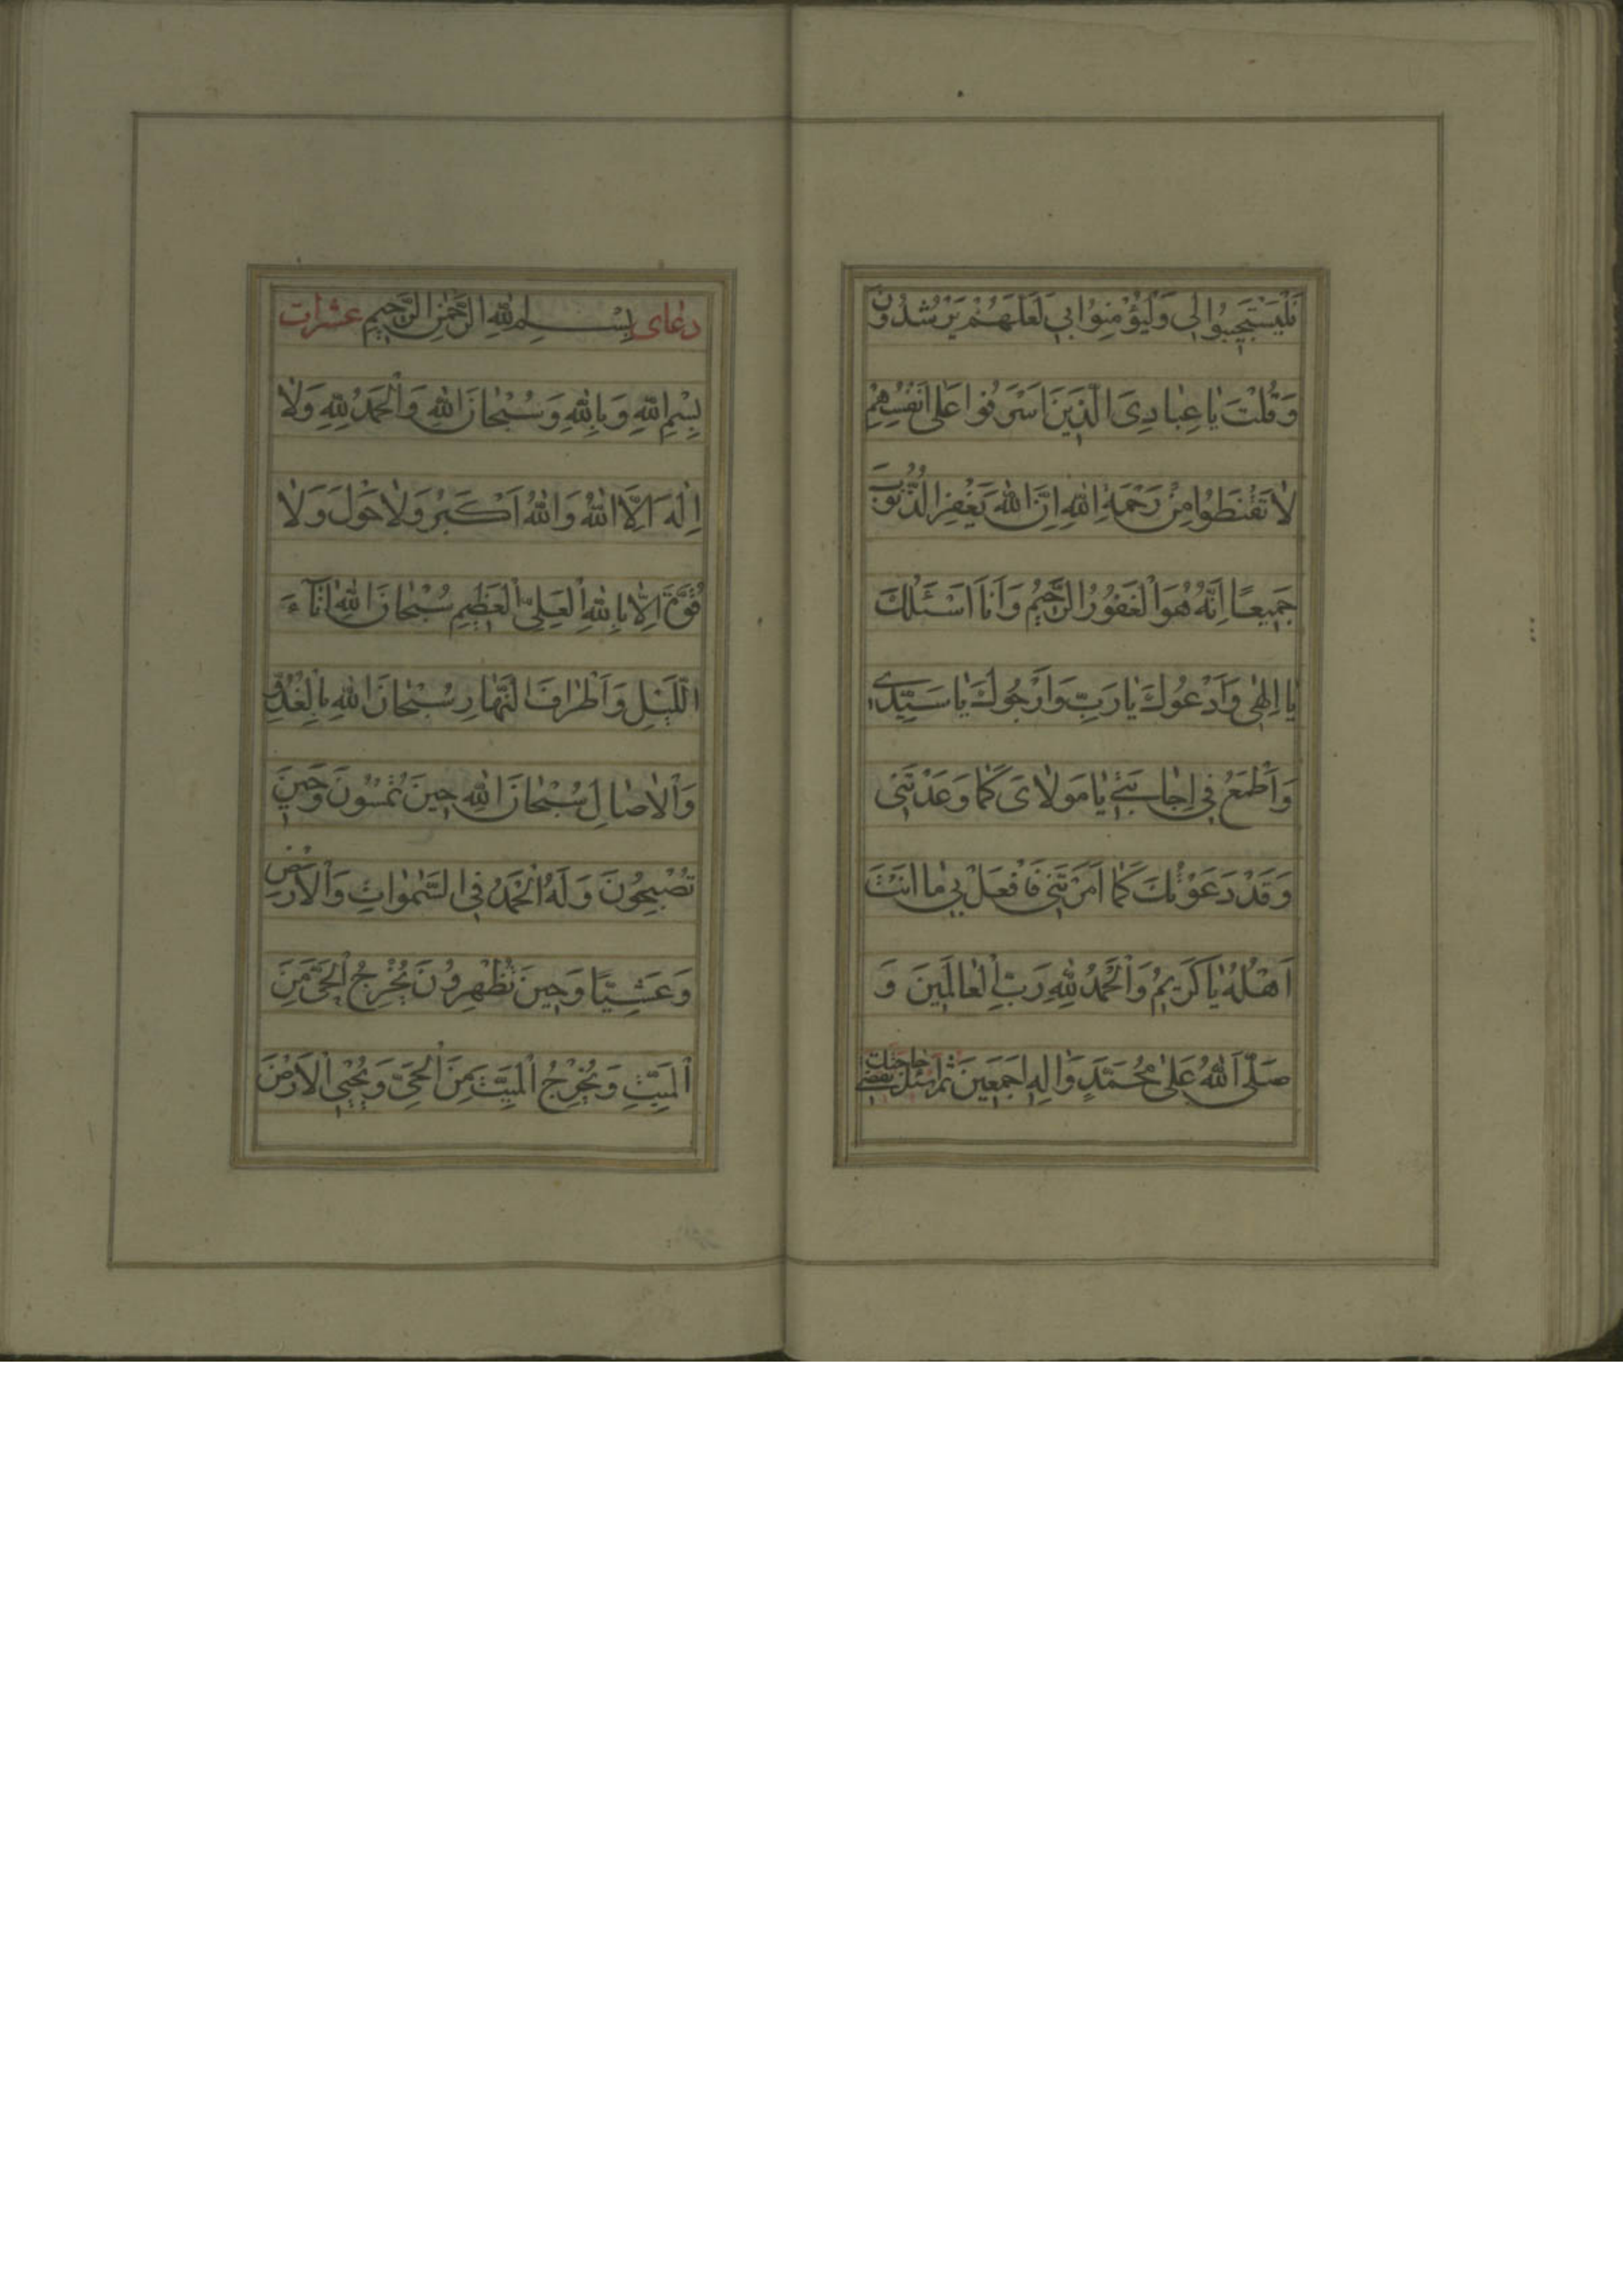 فَلْيَسْتَجيبُوا لي وَلْيُؤْمِنُوا بي لَعَلَّهُمْ يَرْشُدُونَ
وَقُلْتَ يا عِبادِيَ الَّذينَ اَسْرَفُوا عَلى اَنْفُسِهِمْ
لا تَقْنَطُوا مِنْ رَحْمَةِ اللهِ اِنَّ اللهَ يَغْفِرُ الذُّنُوبَ
جَميعًا اِنَّهُ هُوَ الْغَفُورُ الرَّحيمُ وَاَنَا اَسْئَلُكَ
يا اِلهي وَاَدْعُوكَ يا رَبِّ وَاَرْجُوكَ يا سَيِّدي
وَاَطْمَعُ في اِجابَتي يا مَوْلايَ كَما وَعَدْتَني
وَقَدْ دَعَوْتُكَ كَما اَمَرْتَني فَافْعَلْ بي ما اَنْتَ
اَهْلُهُ يا كَريمُ وَالْحَمْدُ لِلّهِ رَبِّ الْعالَمينَ وَ
صَلَّى اللهُ عَلى مُحَمَّدٍ وَالِهِ اَجْمَعينَ ثم اسئل حاجتك تقضى
دعاى بِسْمِ اللهِ الرَّحْمنِ الرَّحيمِ عشرات
بِسْمِ اللهِ وَبِاللهِ وَسُبْحانَ اللهِ وَالْحَمْدُ لِلّهِ وَلا
اِلهَ اِلَّا اللهُ وَاللهُ اَكْبَرُ وَلا حَوْلَ وَلا
قُوَّةَ اِلّا بِاللهِ الْعَلِيِّ الْعَظيمِ سُبْحانَ اللهِ انآءَ
اللَّيْلِ وَاَطْرافَ النَّهارِ سُبْحانَ اللهِ بِالْغُدُوِّ
وَالْاصالِ سُبْحانَ اللهِ حينَ تُمْسُونَ وَحينَ
تُصْبِحُونَ وَلَهُ الْحَمْدُ فِي السَّمواتِ وَالْاَرْضِ
وَعَشِيًّا وَحينَ تُظْهِرُونَ يُخْرِجُ الْحَيَّ مِنَ
الْمَيِّتِ وَيُخْرِجُ الْمَيِّتَ مِنَ الْحَيِّ وَيُحْيِي الْاَرْضَ